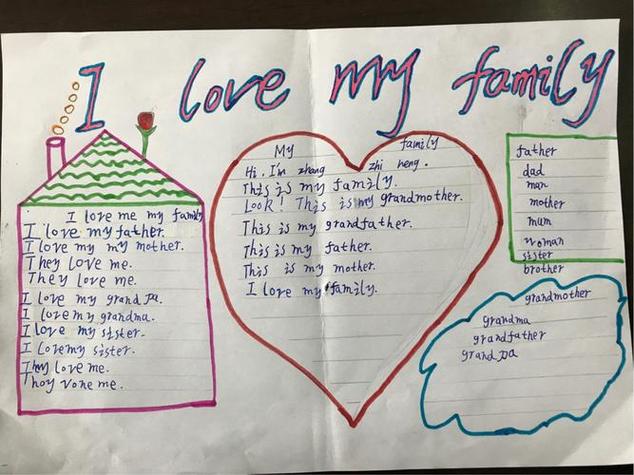 I love my family
I love me my family
I love my father.
I love my my mother.
They love me.
They love me.
I love my grand pa.
I love my grandma.
I love my sister.
I love my sister.
They love me.
Thoy vone me.
My family
Hi, I'm zhang zhi heng.
This is my family.
Look! This is my grandmother.
This is my grandfather.
This is my father.
This is my mother.
I love my family.
father
dad
man
mother
mum
woman
sister
brother
grandmother
grandma
grandfather
grand pa